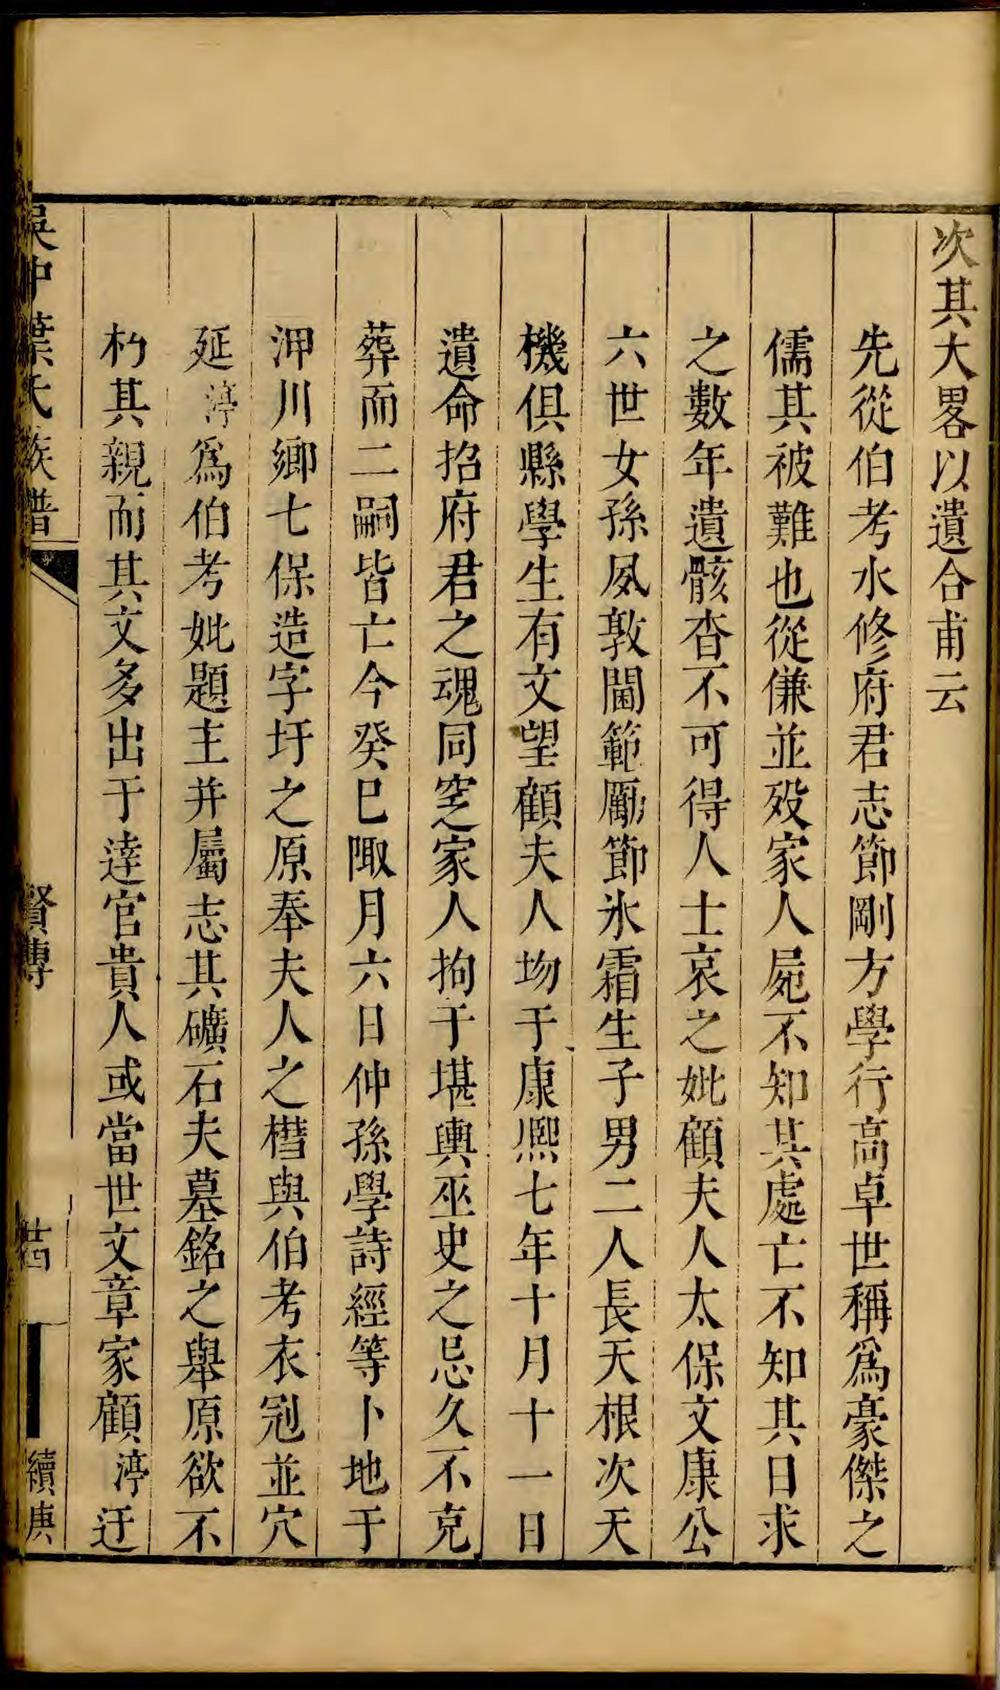 次其大畧以遺合甫云
先從伯考水修府君志節剛方學行高卓世稱爲豪傑之
儒其被難也從傔並歿家人屍不知其處亡不知其日求
之數年遺骸杳不可得人士哀之妣顧夫人太保文康公
六世女孫夙敦閫範勵節氷霜生子男二人長天根次天
機俱縣學生有文望顧夫人歾于康熙七年十月十一日
遺命招府君之魂同窆家人拘于堪輿巫史之忌久不克
葬而二嗣皆亡今癸巳陬月六日仲孫學詩經等卜地于
浬川鄉七保造字圩之原奉夫人之槥與伯考衣冠並穴
延渟爲伯考妣題主并屬志其礦石夫墓銘之舉原欲不
朽其親而其文多出于達官貴人或當世文章家顧渟迂
吳中葉氏族譜
賢傳
廿四
續庚